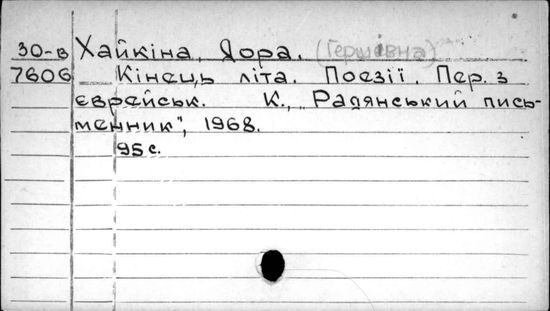 30-в Хайкіна, Дора. (Гершівна)
7606 Кінець літа. Поезії. Пер. з
єврейськ. К., Радянський пись-
менник", 1968.
95 с.